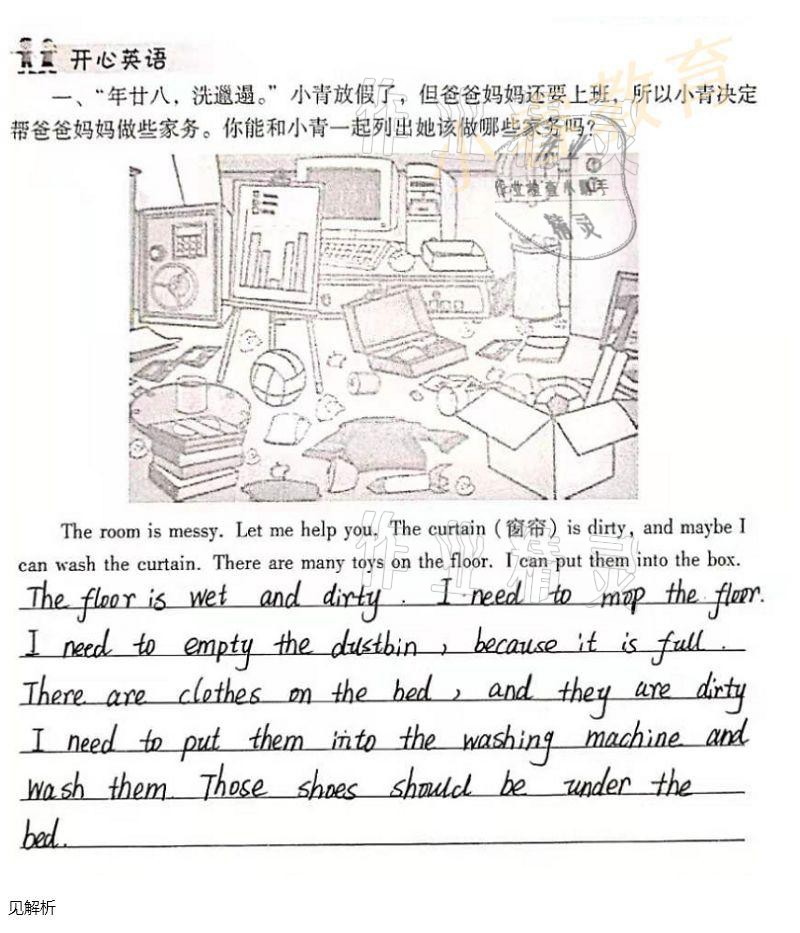 开心英语
一、“年廿八，洗邋遢。”小青放假了，但爸爸妈妈还要上班，所以小青决定
帮爸爸妈妈做些家务。你能和小青一起列出她该做哪些家务吗？
小精教育
作业精灵
作业检查小帮手
精灵
The room is messy. Let me help you. The curtain (窗帘) is dirty, and maybe I
can wash the curtain. There are many toys on the floor. I can put them into the box.
作业精灵
The floor is wet and dirty. I need to mop the floor.
I need to empty the dustbin, because it is full.
There are clothes on the bed, and they are dirty
I need to put them into the washing machine and
wash them. Those shoes should be under the
bed.
见解析